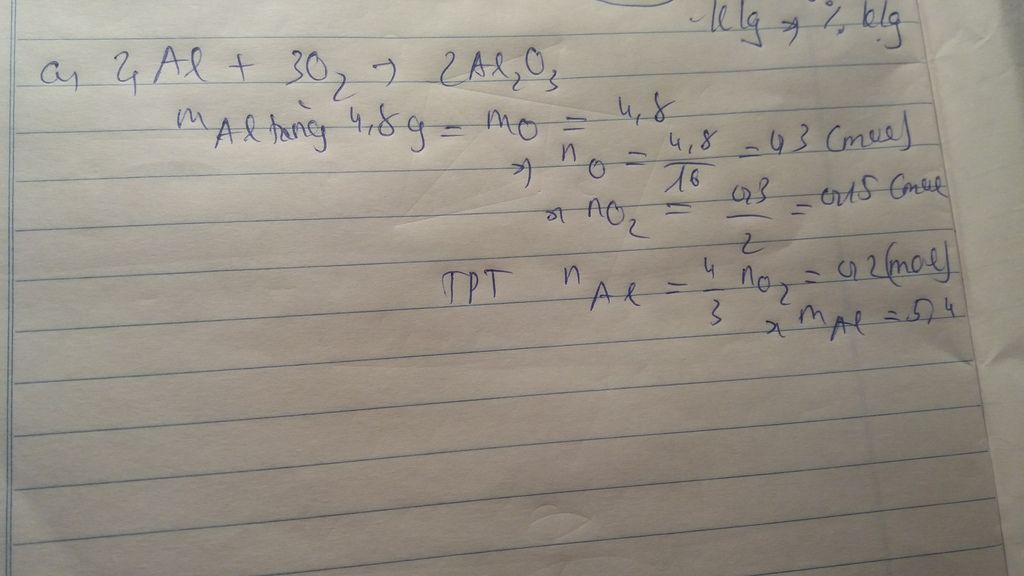 klg → % klg
a, 4Al + 3O₂ → 2Al₂O₃
mAl tăng 4,8g = mO = 4,8
→ nO = 4,8/16 = 0,3 (mol)
→ nO₂ = 0,3/2 = 0,15 (mol
TPT nAl = 4/3 nO₂ = 0,2 (mol)
→ mAl = 5,4